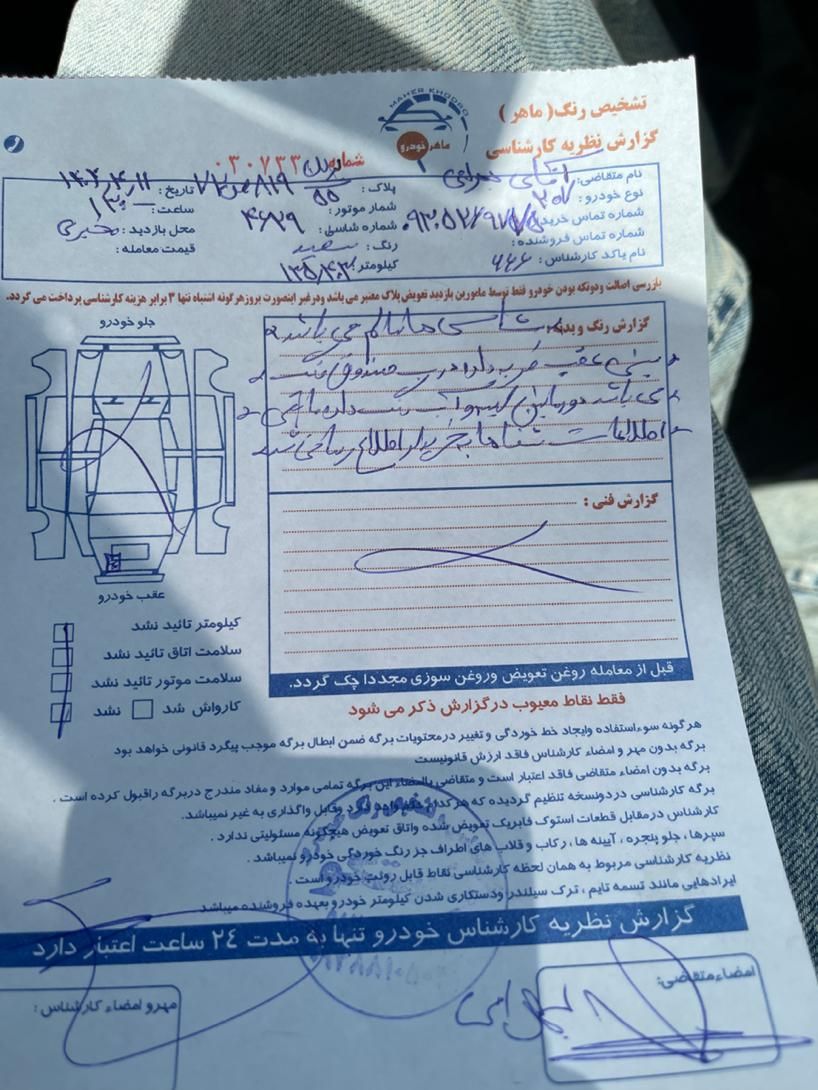 تشخیص رنگ( ماهر )
گزارش نظریه کارشناسی
MAHER KHODRO
ماهر خودرو
شماره ۰۳۰۷۳۳
نام متقاضی: آقای
نوع خودرو: ۲۰۷
شماره تماس خریدار:
شماره تماس فروشنده:
نام یاکد کارشناس: ۶۶۶
پلاک:
شمار موتور:
شماره شاسی: ۴۶۲۹
رنگ: سفید
کیلومتر:
تاریخ:
ساعت:
محل بازدید:
قیمت معامله:
بازرسی اصالت ودونکه بودن خودرو فقط توسط مامورین بازدید تعویض پلاک معتبر می باشد ودرغیر اینصورت بروز هرگونه اشتباه تنها ۳ برابر هزینه کارشناسی پرداخت می گردد.
جلو خودرو
گزارش رنگ و بدنه: شاسی ها سالم می باشد
سینی عقب ضربه دارد درب صندوق رنگ
می باشد
عقب خودرو
گزارش فنی :
کیلومتر تائید نشد
سلامت اتاق تائید نشد
سلامت موتور تائید نشد
کارواش شد نشد
قبل از معامله روغن تعویض وروغن سوزی مجددا چک گردد.
فقط نقاط معیوب درگزارش ذکر می شود
هرگونه سوءاستفاده وایجاد خط خوردگی و تغییر درمحتویات برگه ضمن ابطال برگه موجب پیگرد قانونی خواهد بود
برگه بدون مهر و امضاء کارشناس فاقد ارزش قانونیست
برگه بدون امضاء متقاضی فاقد اعتبار است و متقاضی باامضاء این برگه تمامی موارد و مفاد مندرج دربرگه راقبول کرده است .
برگه کارشناسی دردونسخه تنظیم گردیده که هر کدام وقابل واگذاری به غیر نمیباشد.
کارشناس درمقابل قطعات استوک فابریک تعویض شده واتاق تعویض هیچگونه مسئولیتی ندارد .
سپرها ، جلو پنجره ، آیینه ها ، رکاب و قلاب های اطراف جز رنگ خوردگی خودرو نمیباشد .
نظریه کارشناسی مربوط به همان لحظه کارشناسی نقاط قابل رویت خودرو است .
ایرادهایی مانند تسمه تایم ، ترک سیلندر ودستکاری شدن کیلومتر خودرو بعهده فروشنده میباشد
گزارش نظریه کارشناس خودرو تنها به مدت ۲۴ ساعت اعتبار دارد
امضاء متقاضی:
مهر و امضاء کارشناس: